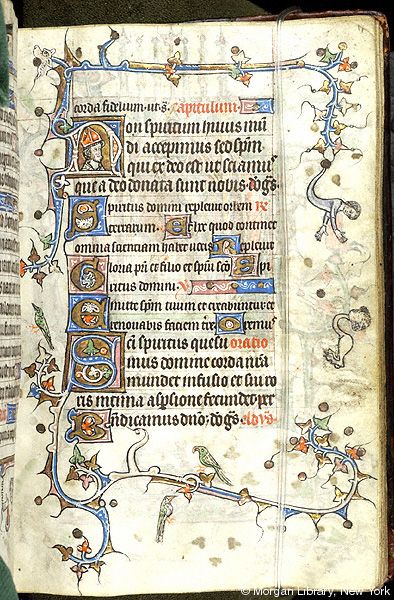 corda fidelium. ut s. Capitulum.
Non spiritum huius mun
di accepimus sed spm
qui ex deo est ut sciamus
que a deo donata sunt nobis. do gs.
Spiritus domini repleuit orbem
terrarum. Et hoc quod continet
omnia scientiam habet uocis. Repleuit
Gloria pri et filio et spui sco Spi
ritus domini. V
Emitte spm tuum et creabuntur et
renouabis faciem tre Oremus
Sci spiritus quesu oratio
mus domine corda nra
mundet infusio et sui ro
ris intima aspersione fecundet. per
Bndicamus dno. do gs.
© Morgan Library, New York